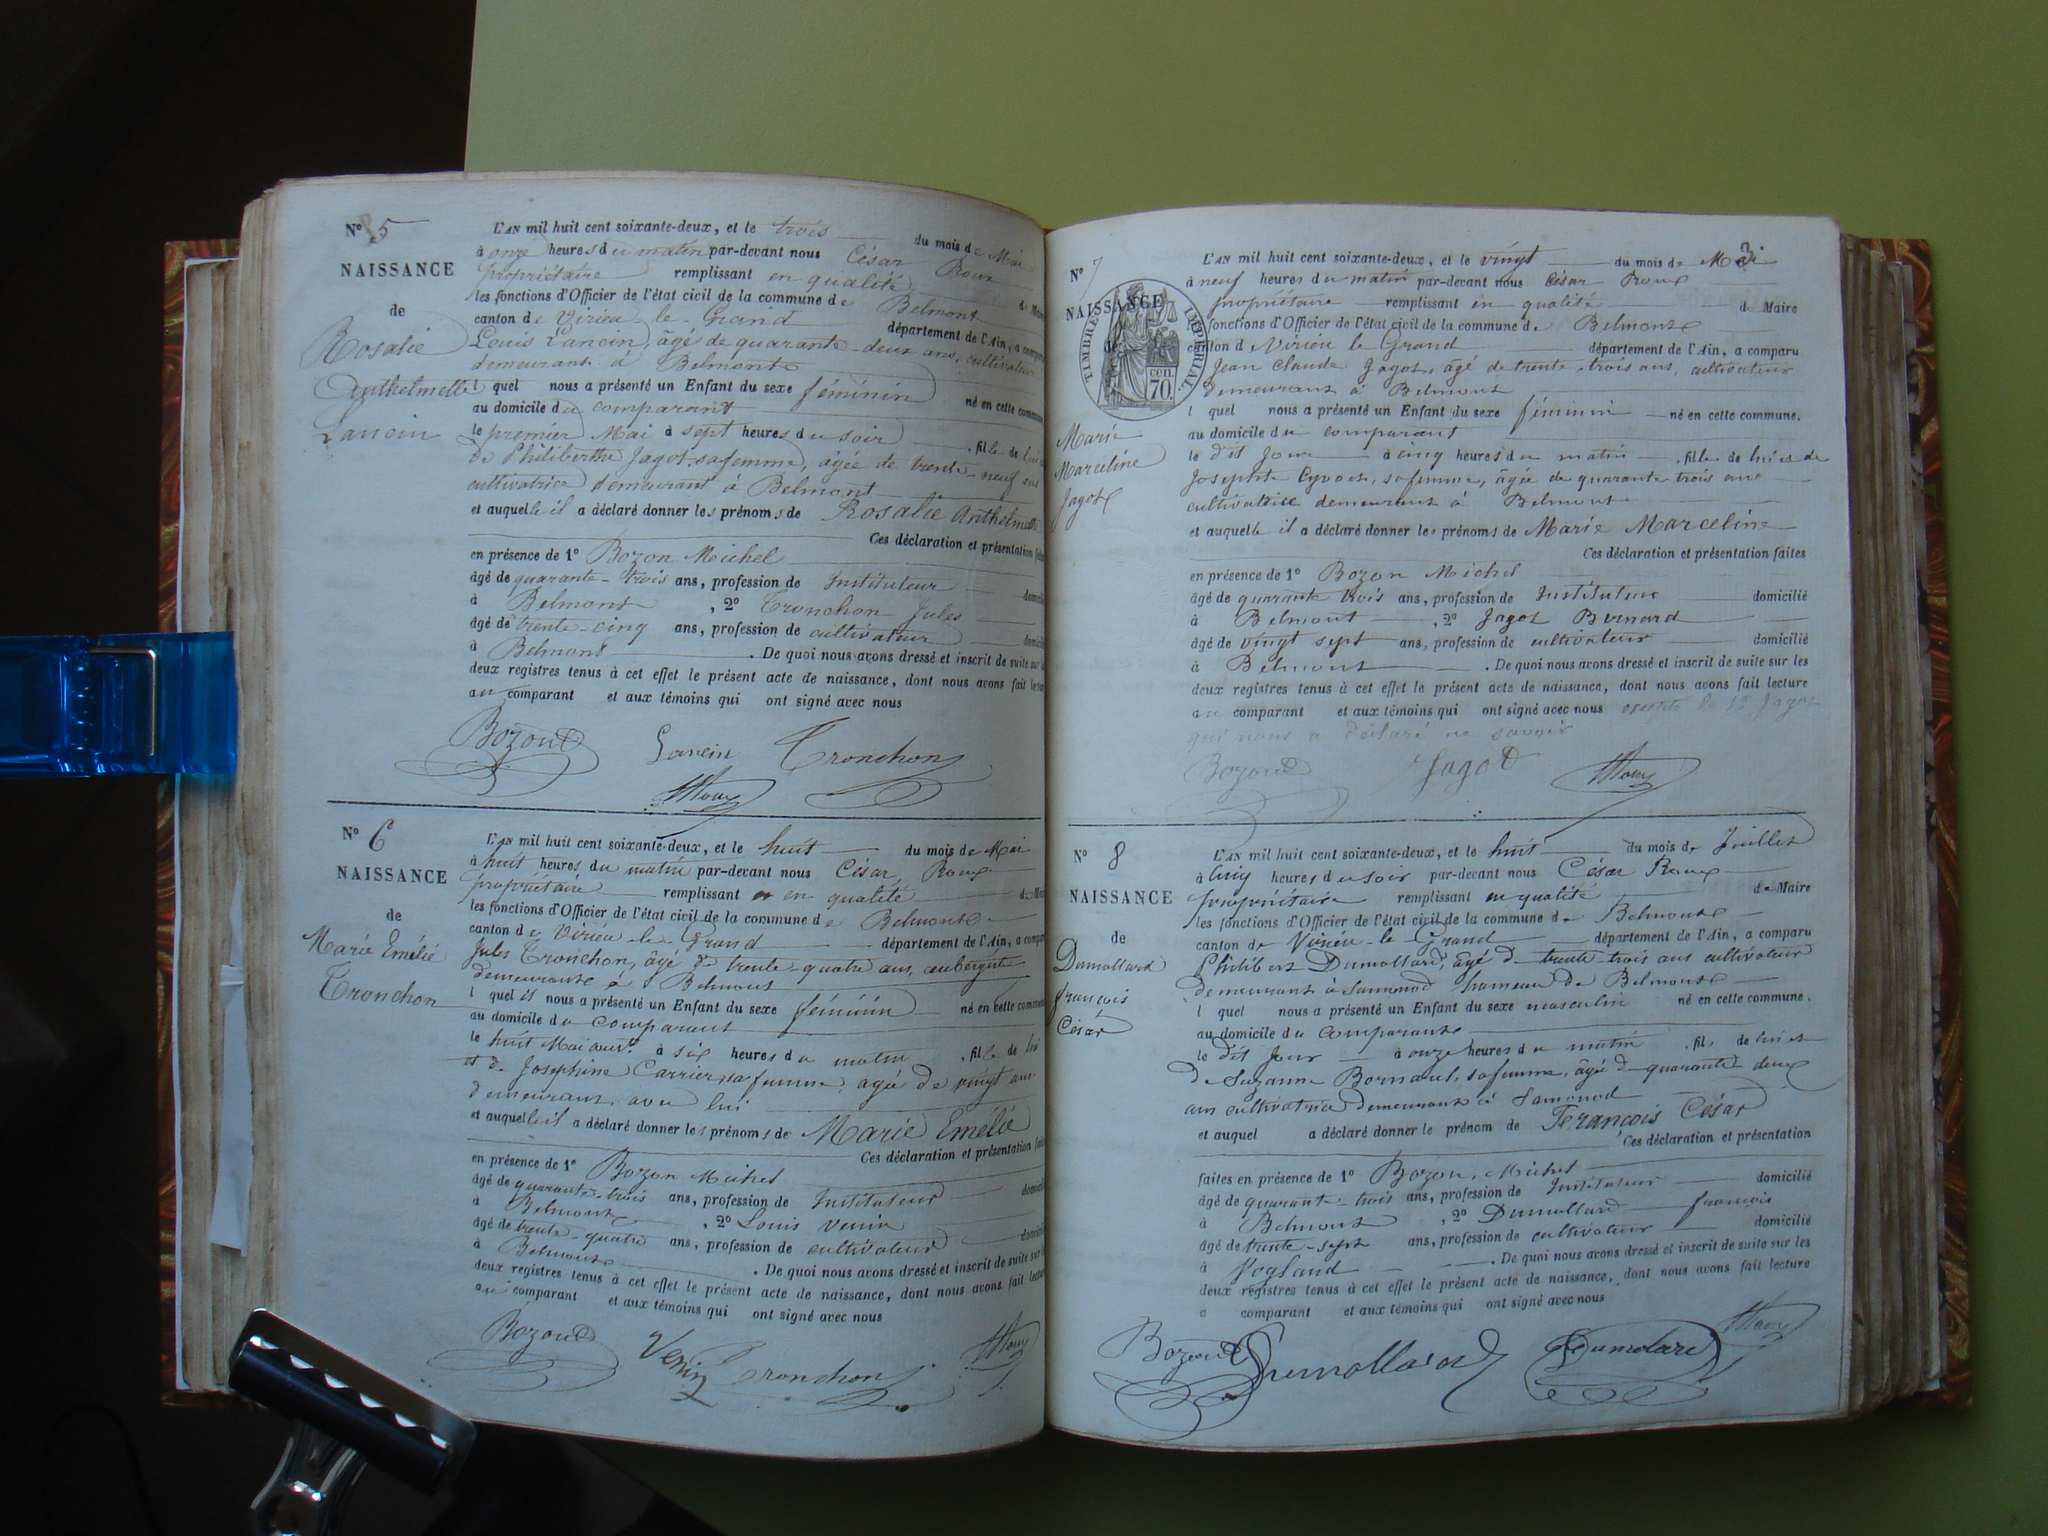 N° 5
NAISSANCE
de
Rosalie
Anthelmelle
Lancin
L'AN mil huit cent soixante-deux, et le trois du mois de Mai
à onze heures du matin par-devant nous César Roux
propriétaire remplissant en qualité de Maire
les fonctions d'Officier de l'état civil de la commune de Belmont
canton de Virieu le Grand département de l'Ain, a comparu
Louis Lancin, âgé de quarante-deux ans, cultivateur
demeurant à Belmont
l quel nous a présenté un Enfant du sexe féminin né en cette commune
au domicile du comparant
le premier Mai à sept heures du soir, fille de lui
de Philiberthe Jagot, sa femme, âgée de trente-neuf ans
cultivatrice demeurant à Belmont
et auquelle il a déclaré donner les prénoms de Rosalie Anthelmelle
Ces déclaration et présentation faites
en présence de 1° Bozon Michel
âgé de quarante-trois ans, profession de Instituteur domicilié
à Belmont, 2° Tronchon Jules
âgé de trente-cinq ans, profession de cultivateur domicilié
à Belmont. De quoi nous avons dressé et inscrit de suite sur les
deux registres tenus à cet effet le présent acte de naissance, dont nous avons fait lecture
au comparant et aux témoins qui ont signé avec nous
Bozon Lancin Tronchon
Roux
N° 6
NAISSANCE
de
Marie Emélie
Tronchon
L'AN mil huit cent soixante-deux, et le huit du mois de Mai
à huit heures du matin par-devant nous César Roux
propriétaire remplissant en qualité de Maire
les fonctions d'Officier de l'état civil de la commune de Belmont
canton de Virieu-le-Grand département de l'Ain, a comparu
Jules Tronchon, âgé de trente-quatre ans, aubergiste
demeurant à Belmont
l quel nous a présenté un Enfant du sexe féminin né en cette commune
au domicile du comparant
le huit Mai à six heures du matin, fille de lui
et de Josephine Carrier, sa femme, âgée de vingt ans
demeurant avec lui
et auquelle il a déclaré donner les prénoms de Marie Emélie
Ces déclaration et présentation faites
en présence de 1° Bozon Michel
âgé de quarante-trois ans, profession de Instituteur domicilié
à Belmont, 2° Louis Venin
âgé de trente-quatre ans, profession de cultivateur domicilié
à Belmont. De quoi nous avons dressé et inscrit de suite sur les
deux registres tenus à cet effet le présent acte de naissance, dont nous avons fait lecture
au comparant et aux témoins qui ont signé avec nous
Bozon Venin Tronchon Roux
3
N° 7
NAISSANCE
de
TIMBRE IMPÉRIAL
70 CEN.
Marie
Marceline
Jagot
L'AN mil huit cent soixante-deux, et le vingt du mois de Mai
à neuf heures du matin par-devant nous César Roux
propriétaire remplissant en qualité de Maire
fonctions d'Officier de l'état civil de la commune de Belmont
canton d Virieu le Grand département de l'Ain, a comparu
Jean Claude Jagot, âgé de trente-trois ans, cultivateur
demeurant à Belmont
l quel nous a présenté un Enfant du sexe féminin né en cette commune.
au domicile du comparant
le dit jour à cinq heures du matin, fille de lui et de
Josephte sa femme, âgée de quarante trois ans
cultivatrice demeurant à Belmont
et auquelle il a déclaré donner les prénoms de Marie Marceline
Ces déclaration et présentation faites
en présence de 1° Bozon Michel
âgé de quarante trois ans, profession de Instituteur domicilié
à Belmont, 2° Jagot Bernard
âgé de vingt sept ans, profession de cultivateur domicilié
à Belmont. De quoi nous avons dressé et inscrit de suite sur les
deux registres tenus à cet effet le présent acte de naissance, dont nous avons fait lecture
au comparant et aux témoins qui ont signé avec nous Jagot
qui nous a déclaré ne savoir
Bozon Jagot Roux
N° 8
NAISSANCE
de
Dumollard
françois
César
L'AN mil huit cent soixante-deux, et le huit du mois de Juillet
à cinq heures du soir par-devant nous César Roux
propriétaire remplissant en qualité de Maire
les fonctions d'Officier de l'état civil de la commune de Belmont
canton de Virieu-le-Grand département de l'Ain, a comparu
Philibert Dumollard, âgé de trente-trois ans cultivateur
demeurant à Samonod hameau de Belmont
l quel nous a présenté un Enfant du sexe masculin né en cette commune.
au domicile du comparant
le dit jour à onze heures du matin, fils de lui et
de Suzanne Bornard, sa femme, âgée de quarante deux
ans cultivatrice demeurant à Samonod
et auquel a déclaré donner le prénom de François César
Ces déclaration et présentation
faites en présence de 1° Bozon, Michel
âgé de quarante-trois ans, profession de Instituteur domicilié
à Belmont, 2° Dumollard françois
âgé de trente-sept ans, profession de cultivateur domicilié
à Vogland. De quoi nous avons dressé et inscrit de suite sur les
deux registres tenus à cet effet le présent acte de naissance, dont nous avons fait lecture
a comparant et aux témoins qui ont signé avec nous
Bozon Dumollard Dumolard Roux